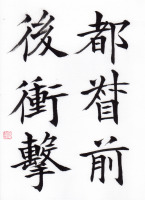 都督前
後衝擊